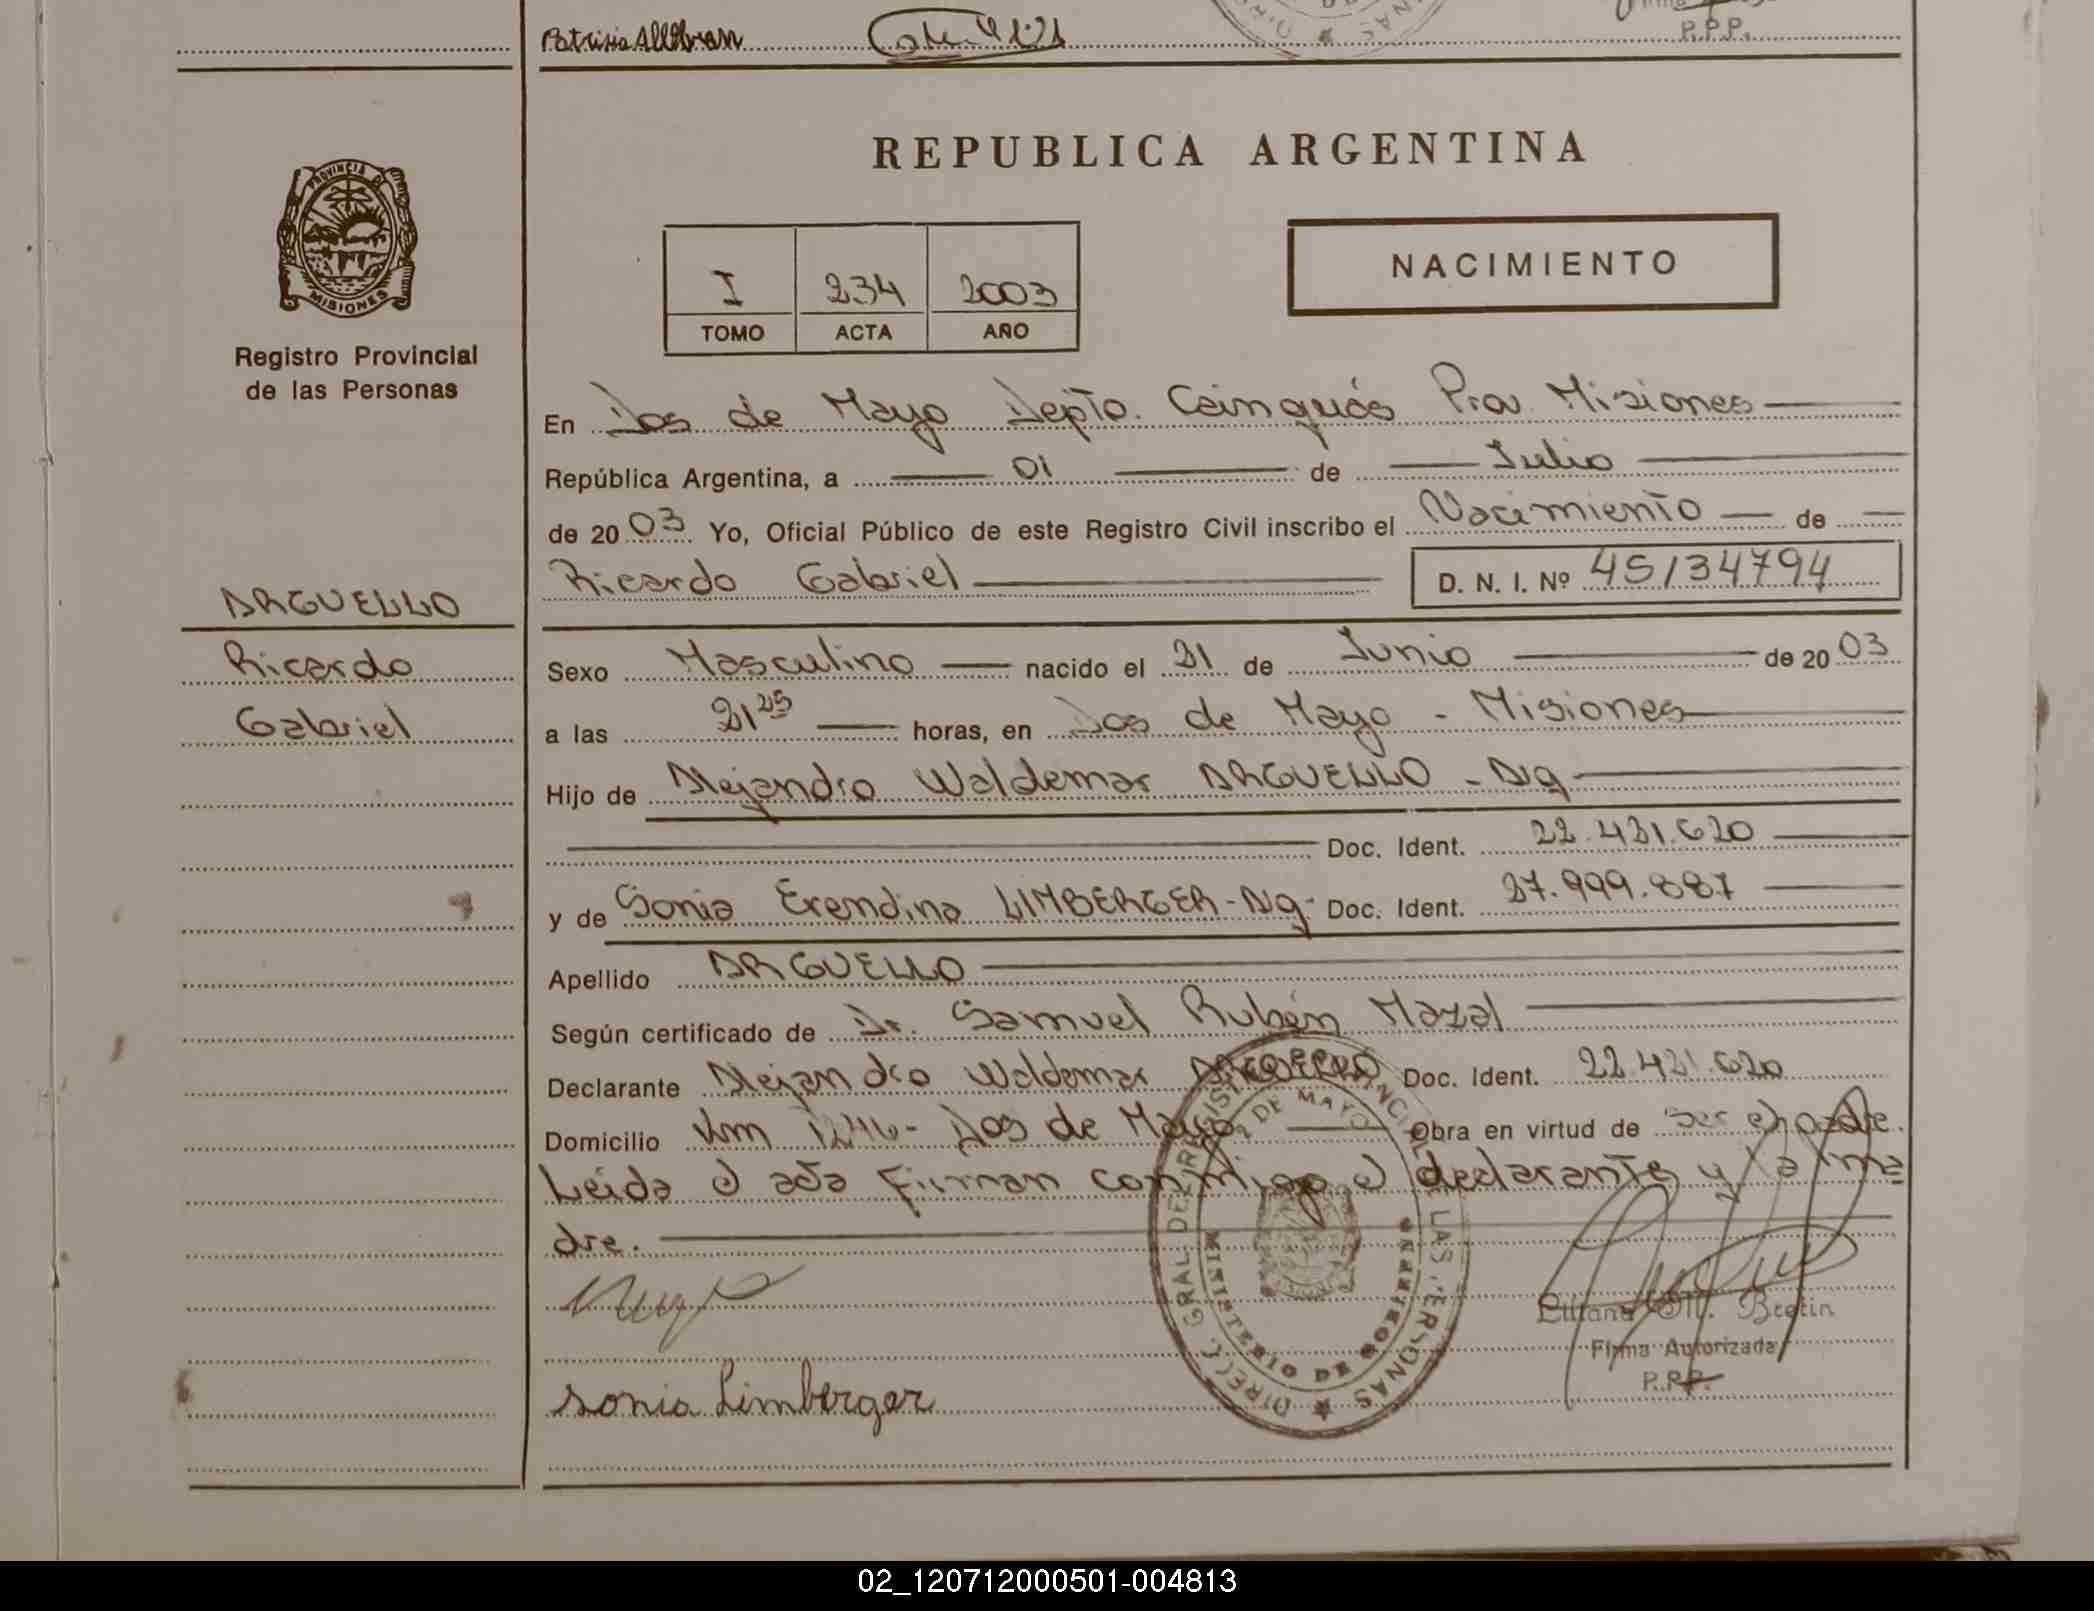 Patrisia All
P.P.P.
REPUBLICA ARGENTINA
PROVINCIA DE
MISIONES
Registro Provincial
de las Personas
I 234 2003
TOMO ACTA AÑO
NACIMIENTO
En Dos de Mayo Depto. Cainguás Prov. Misiones
República Argentina, a 01 de Julio
de 2003 Yo, Oficial Público de este Registro Civil inscribo el Nacimiento de
Ricardo Gabriel D. N. I. Nº 45134794
ARGUELLO
Ricardo
Gabriel
Sexo Masculino nacido el 21 de Junio de 2003
a las 21 25 horas, en Dos de Mayo - Misiones
Hijo de Alejandro Waldemar ARGUELLO - Arg
Doc. Ident. 22.421.620
y de Sonia Erendina LIMBERGER - Arg. Doc. Ident. 27.999.887
Apellido ARGUELLO
Según certificado de Dr. Samuel Rubén Mazal
Declarante Alejandro Waldemar ARGUELLO Doc. Ident. 22.421.620
Domicilio Km 1246 - Dos de Mayo. Obra en virtud de ser el padre.
Leída el acta firman conmigo el declarante y la ma
dre.
DIRECC. GRAL. DE REGISTRO PROVINCIAL DE LAS PERSONAS
2 DE MAYO
MINISTERIO DE GOBIERNO
Liliana M. Bretin
Firma Autorizada
P.P.P.
Sonia Limberger
02_120712000501-004813